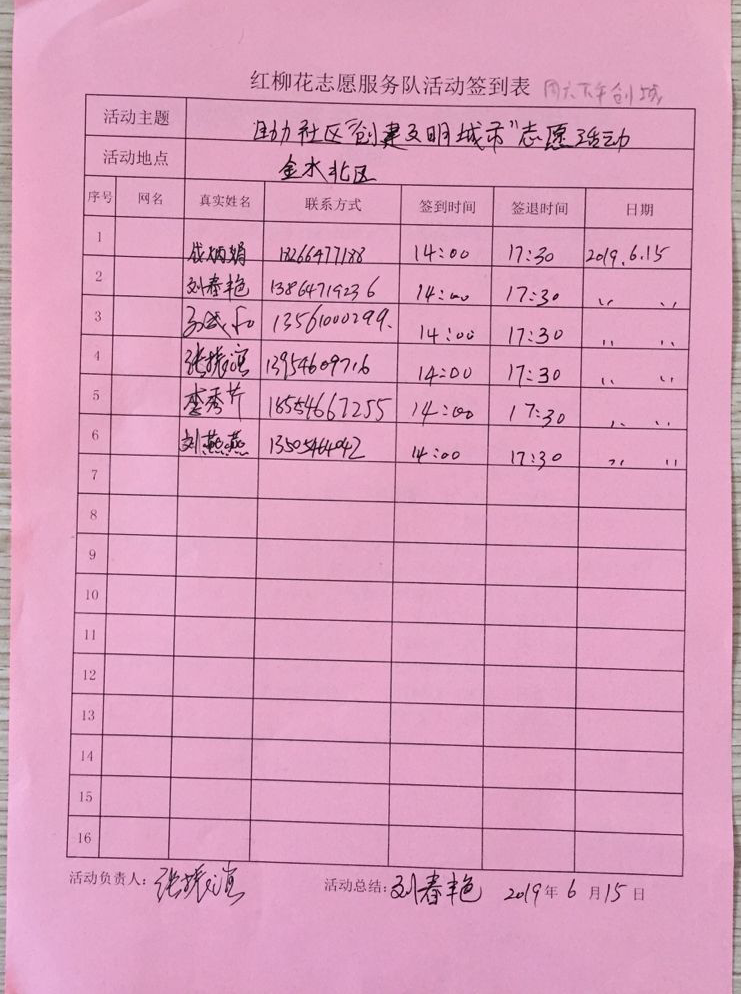 红柳花志愿服务队活动签到表 周六下午创城
活动主题 助社区“创建文明城市”志愿活动
活动地点 金水北区
序号 网名 真实姓名 联系方式 签到时间 签退时间 日期
1 18266477188 14:00 17:30 2019.6.15
2 刘春艳 13864719236 14:00 17:30 〃 〃
3 13561000299. 14:00 17:30 〃 〃
4 张振滨 13954609716 14:00 17:30 〃 〃
5 李秀芹 18554667255 14:00 17:30 〃 〃
6 刘燕燕 14:00 17:30 〃 〃
7
8
9
10
11
12
13
14
15
16
活动负责人: 张振滨 活动总结: 刘春艳 2019年6月15日